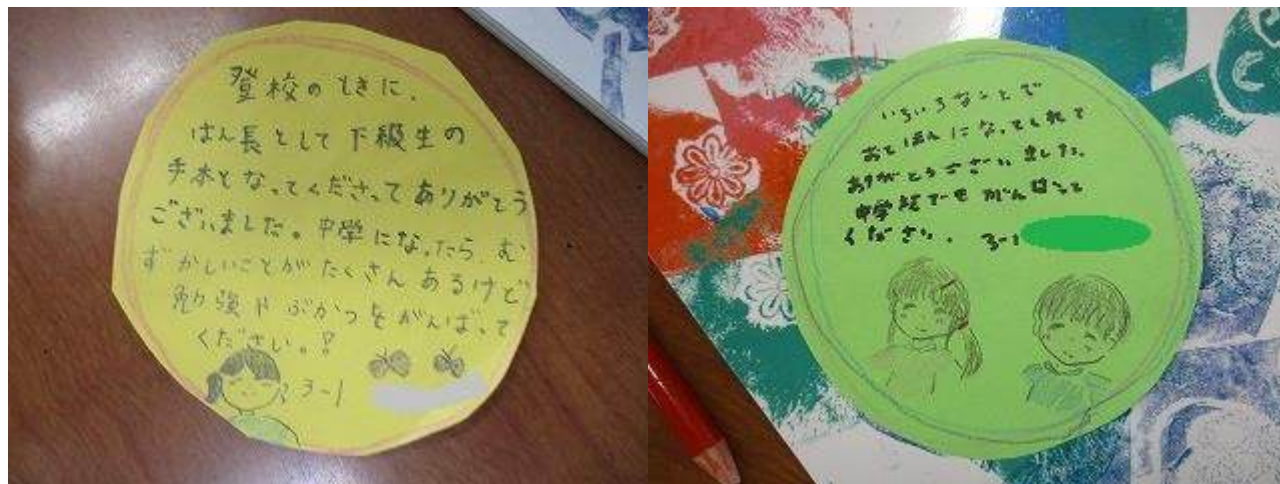 登校のときに、
はん長として下級生の
手本となってくださってありがとう
ございました。中学になったら、む
ずかしいことがたくさんあるけど
勉強やぶかつをがんばって
ください。!!
3-1
いろいろなことで
おてほんになってくれて
ありがとうございました。
中学校でもがんばって
ください。 3-1